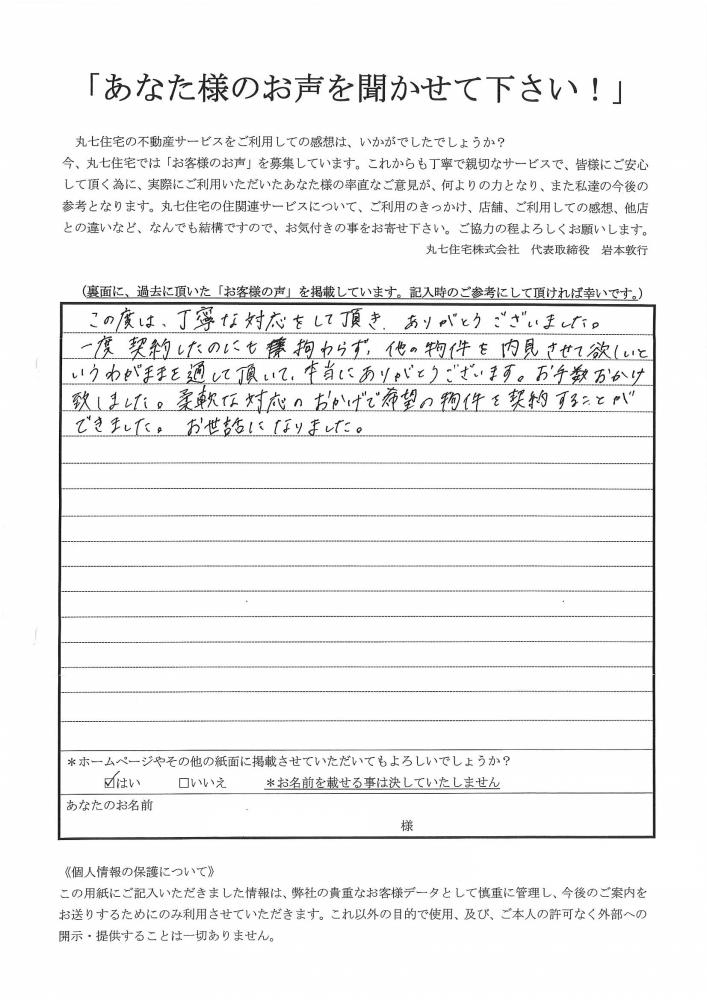 「あなた様のお声を聞かせて下さい！」
丸七住宅の不動産サービスをご利用しての感想は、いかがでしたでしょうか？
今、丸七住宅では「お客様のお声」を募集しています。これからも丁寧で親切なサービスで、皆様にご安心
して頂く為に、実際にご利用いただいたあなた様の率直なご意見が、何よりの力となり、また私達の今後の
参考となります。丸七住宅の住関連サービスについて、ご利用のきっかけ、店舗、ご利用しての感想、他店
との違いなど、なんでも結構ですので、お気付きの事をお寄せ下さい。ご協力の程よろしくお願いします。
丸七住宅株式会社　代表取締役　岩本敦行
（裏面に、過去に頂いた「お客様の声」を掲載しています。記入時のご参考にして頂ければ幸いです。）
この度は、丁寧な対応をして頂き、ありがとうございました。
一度契約したのにも拘わらず、他の物件を内見させて欲しいと
いうわがままを通して頂いて、本当にありがとうございます。お手数おかけ
致しました。柔軟な対応のおかげで希望の物件を契約することが
できました。お世話になりました。
＊ホームページやその他の紙面に掲載させていただいてもよろしいでしょうか？
☑はい　□いいえ　＊お名前を載せる事は決していたしません
あなたのお名前
様
《個人情報の保護について》
この用紙にご記入いただきました情報は、弊社の貴重なお客様データとして慎重に管理し、今後のご案内を
お送りするためにのみ利用させていただきます。これ以外の目的で使用、及び、ご本人の許可なく外部への
開示・提供することは一切ありません。